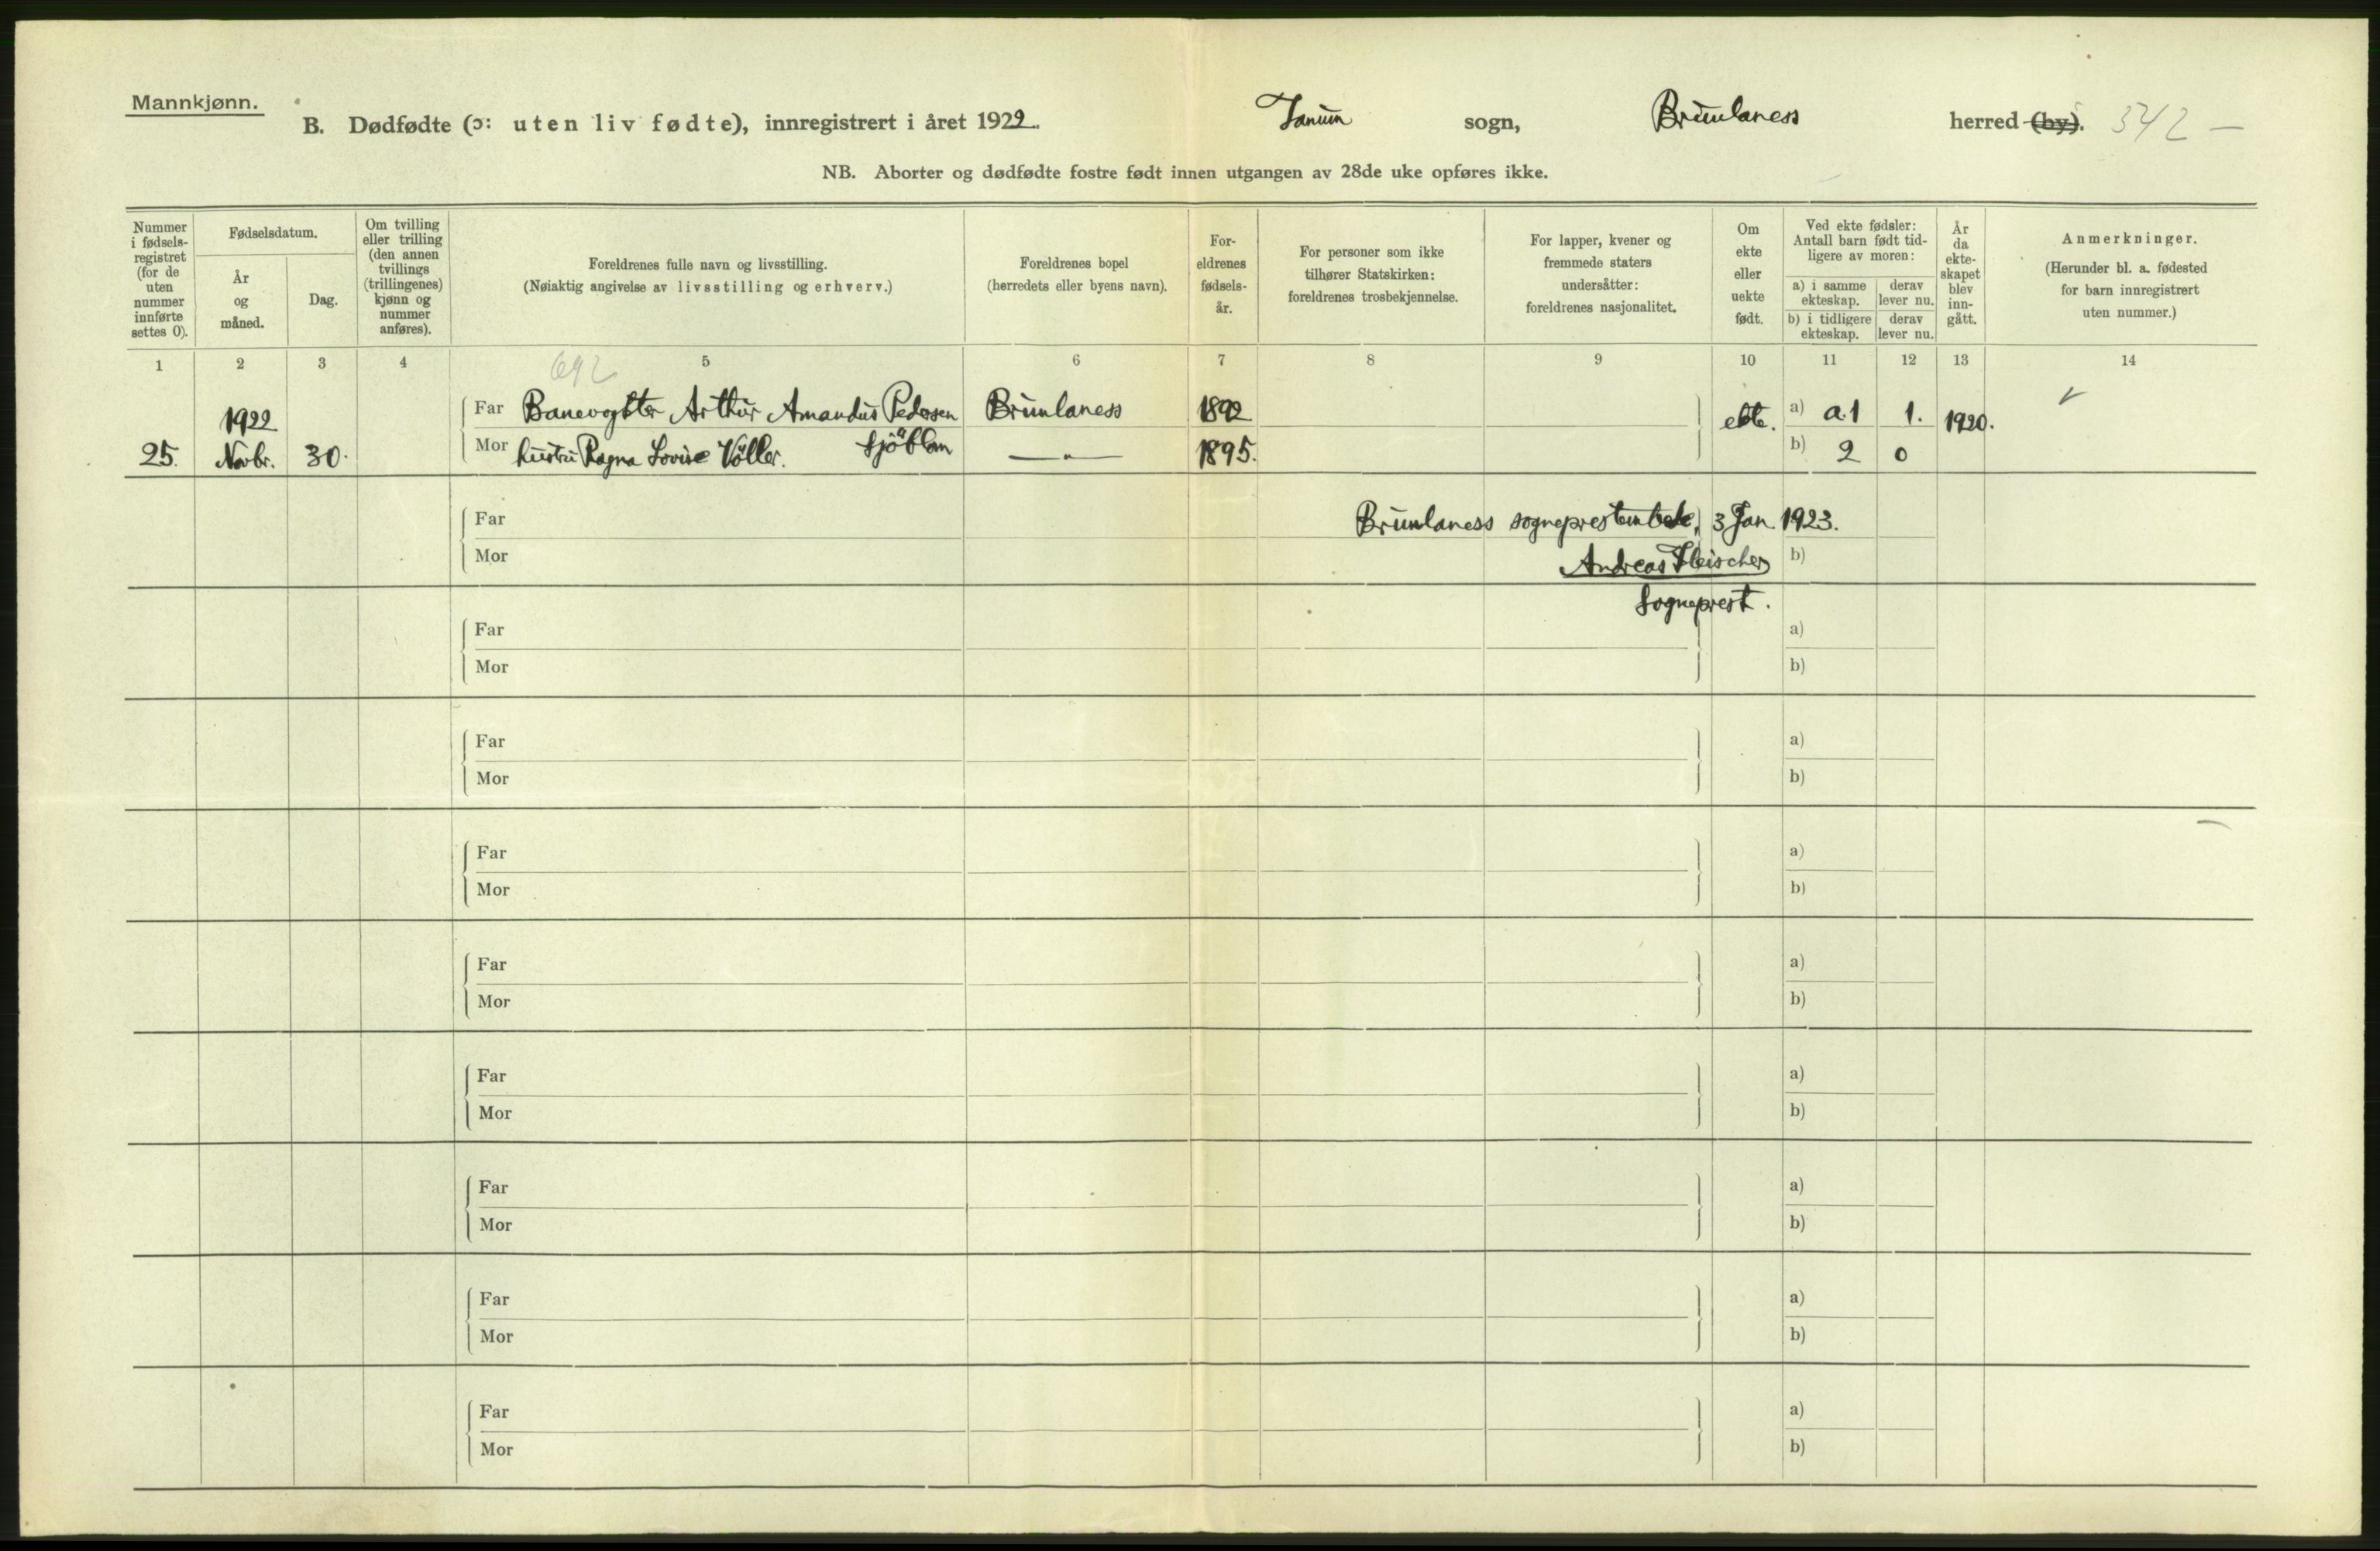 Mannkjønn.
B. Dødfødte (ɔ: uten liv fødte), innregistrert i året 1922. Tanum sogn, Brunlaness herred (by). 342 —
NB. Aborter og dødfødte fostre født innen utgangen av 28de uke opføres ikke.
Nummer
i fødsels-
registret
(for de
uten
nummer
innførte
settes 0).
Fødselsdatum.
År
og
måned.
Dag.
Om tvilling
eller trilling
(den annen
tvillings
(trillingenes)
kjønn og
nummer
anføres).
Foreldrenes fulle navn og livsstilling.
(Nøiaktig angivelse av livsstilling og erhverv.)
Foreldrenes bopel
(herredets eller byens navn).
For-
eldrenes
fødsels-
år.
For personer som ikke
tilhører Statskirken:
foreldrenes trosbekjennelse.
For lapper, kvener og
fremmede staters
undersåtter:
foreldrenes nasjonalitet.
Om
ekte
eller
uekte
født.
Ved ekte fødsler:
Antall barn født tid-
ligere av moren:
a) i samme
ekteskap.
derav
lever nu.
b) i tidligere
ekteskap.
derav
lever nu.
År
da
ekte-
skapet
blev
inn-
gått.
Anmerkninger.
(Herunder bl. a. fødested
for barn innregistrert
uten nummer.)
1 2 3 4 5 6 7 8 9 10 11 12 13 14
692
Far Banevogter Arthur Amandus Pedersen Brunlaness 1892 ekte. a) a.1 1. 1920.
1922
Sjöblom
25. Novbr. 30. Mor hustru Ragna Lovise Völler. —„— 1895. b) 2 0
Far Brunlaness sogneprestembede, 3 Jan. 1923.
Mor Andreas Fleischer b)
Sogneprest.
Far a)
Mor b)
Far a)
Mor b)
Far a)
Mor b)
Far a)
Mor b)
Far a)
Mor b)
Far a)
Mor b)
Far a)
Mor b)
Far a)
Mor b)